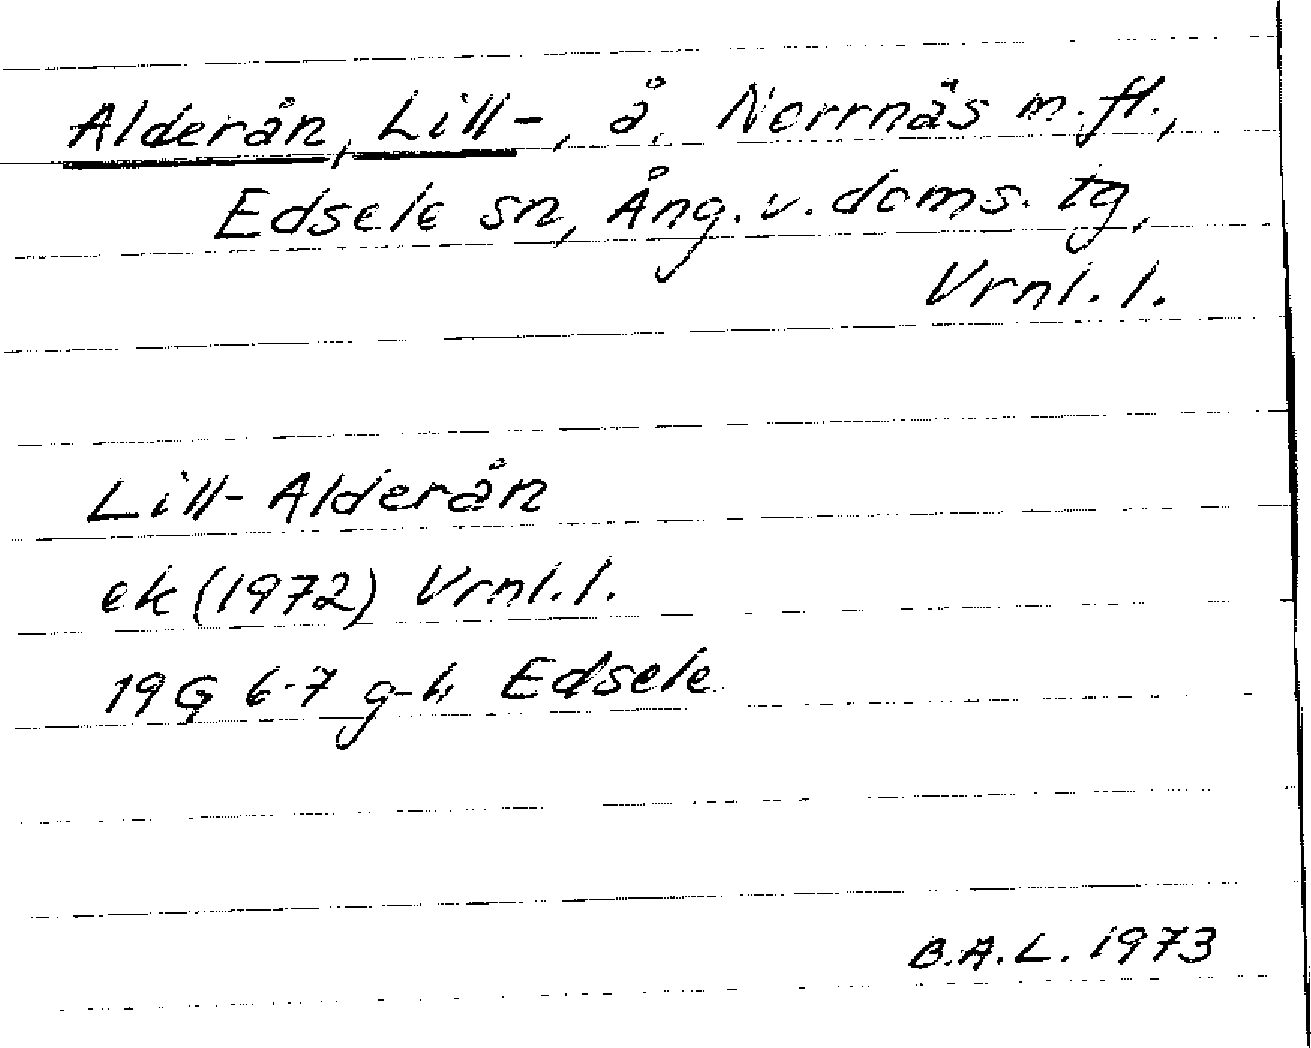 Alderån, Lill-, å, Norrnäs m.fl.,
Edsele sn, Ång. v. doms. tg,
Vrnl. l.
Lill-Alderån
ek (1972) Vrnl. l.
19G 6-7 g-h Edsele
B.A.L. 1973